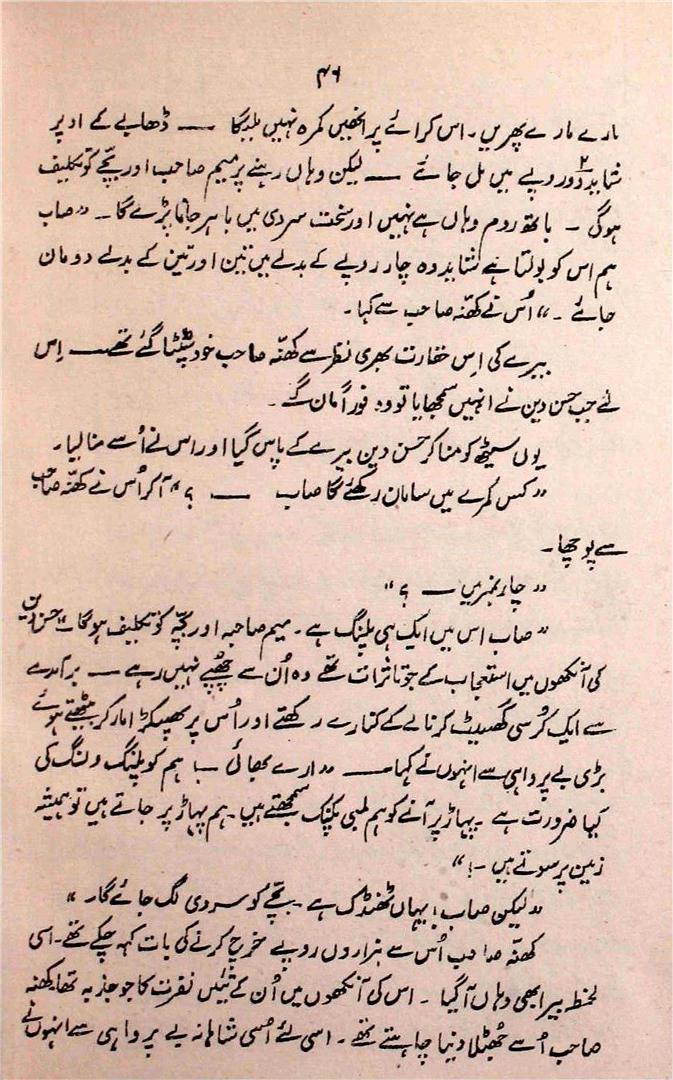 ۴۶
مارے مارے پھریں۔ اس کرائے پر انھیں کمرہ نہیں ملیگا — ڈھابے کے اوپر
شاید دو روپے میں مل جائے — لیکن وہاں رہنے پر میم صاحب اور بچّے کو تکلیف
ہوگی ۔ باتھ روم وہاں ہے نہیں اور سخت سردی میں باہر جانا پڑے گا۔ ”صاب
ہم اس کو بولتا ہے شاید وہ چار روپے کے بدلے میں تین اور تین کے بدلے دو مان
جائے ۔“ اُس نے کھنّہ صاحب سے کہا۔
بیرے کی اِس حقارت بھری نظر سے کھنّہ صاحب خود سٹپٹا گئے تھے — اِس
لئے جب حسن دین نے انہیں سمجھایا تو وہ فوراً مان گئے۔
یوں سیٹھ کو منا کر حسن دین بیرے کے پاس گیا اور اس نے اُسے منا لیا۔
”کس کمرے میں سامان رکھئے گا صاب — ؟“ آکر اُس نے کھنّہ صاحب
سے پوچھا۔
”چار نمبر میں — ؟“
”صاب اس میں ایک ہی پلنگ ہے۔ میم صاحبہ اور بچّہ کو تکلیف ہوگا“ حسن دین
کی آنکھوں میں استعجاب کے جو تاثرات تھے وہ اُن سے چھپے نہیں رہے — برآمدے
سے ایک کُرسی گھسیٹ کر نالے کے کنارے رکھتے اور اُس پر پھیکڑا مار کر بیٹھتے ہوئے
بڑی بے پرواہی سے انہوں نے کہا — ”ارے بھائی صاب ہم کو پلنگ ولنگ کی
کیا ضرورت ہے ۔ پہاڑ پر آنے کو ہم لمبی پکنک سمجھتے ہیں۔ ہم پہاڑ پر جاتے ہیں تو ہمیشہ
زمین پر سوتے ہیں ۔!“
”لیکن صاب! یہاں ٹھنڈک ہے۔ بچّے کو سردی لگ جائے گا۔“
کھنّہ صاحب اُس سے ہزاروں روپے خرچ کرنے کی بات کہہ چکے تھے۔ اسی
لحظہ بیرا بھی وہاں آگیا ۔ اس کی آنکھوں میں اُن کے تئیں نفرت کا جو جذبہ تھا، کھنّہ
صاحب اُسے جُھٹلا دینا چاہتے تھے۔ اسی لئے اُسی شاہانہ بے پرواہی سے انہوں نے